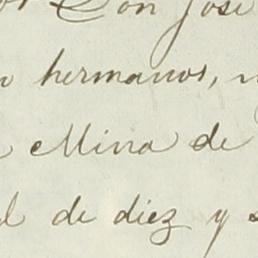 Don José
hermanos,
Mina de
de diez y